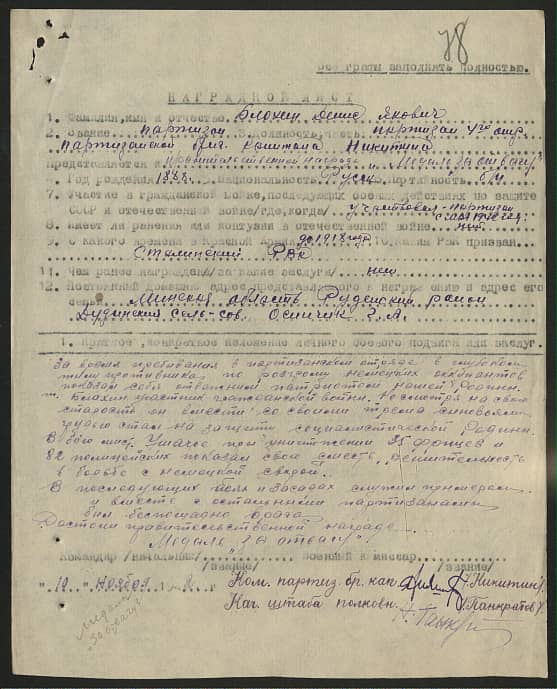 78
Все графы заполнять полностью.
НАГРАДНОЙ ЛИСТ
1. Фамилия, имя и отчество Блохин Денис Якович
2. Звание партизан 3. Должность, часть партизан отр.
партизанской бриг. капитана Никитина
Представляется к правительственной награде "Медаль за отвагу"
Год рождения 1888. Национальность Русск. Партийность б/п
7. Участие в гражданской войне, последующих боевых действиях по защите
СССР и отечественной войне /где, когда/ участвовал партизан
8. Имеет ли ранения или контузии в отечественной войне. нет
9. С какого времени в Красной Армии до 1918 года 10. Каким РВК призван
Сталинский РВК
11. Чем ранее награжден /за какие заслуги/ нет
12. Постоянный домашний адрес представляемого к награждению и адрес его
семьи Минская область Руденский район
Дудинский сель-сов. Осипчик
1. Краткое, конкретное изложение личного боевого подвига или заслуг.
За время пребывания в партизанском отряде в глубоком
тылу противника по разгрому немецких оккупантов
показал себя отважным патриотом нашей Родины.
т. Блохин участник гражданской войны. Несмотря на свою
старость он вместе со своими тремя сыновьями
грудью стал на защиту социалистической Родины.
В бою при уничтожении 25 фрицев и
82 полицейских показал свою смелость, решительность
в борьбе с немецкой сворой.
В последующих боях и засадах служил примером
и вместе с остальными партизанами
бил беспощадно врага.
Достоин правительственной награде
"Медаль за отвагу"
Командир /начальник/ Военный комиссар
/звание/ /звание/
"10" ноября г.
Ком. партиз. бр. кап. /Никитин/
Нач. штаба полковн. /Панкратов/
Медаль
"За отвагу"